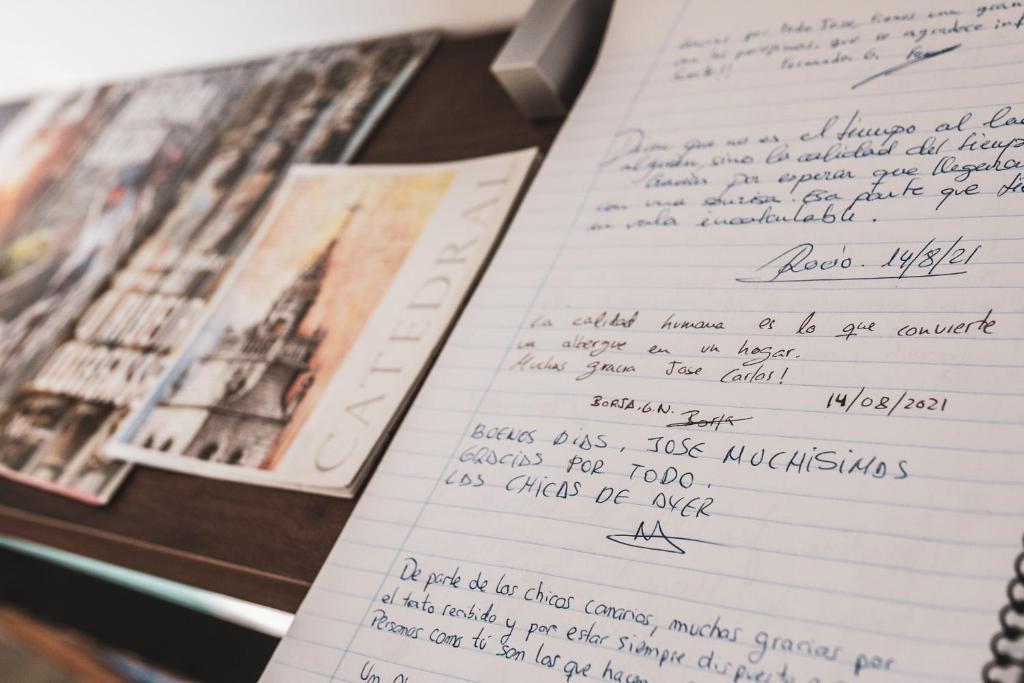 CATEDRAL
por todo Jose tienes una gran
que se agradece
Fernando G.
que no es el tiempo al
sino la calidad del tiempo
Gracias por esperar que llegara
con una sonrisa. Esa parte que
incalculable.
Rocío. 14/8/21
La calidad humana es lo que convierte
un albergue en un hogar.
Muchas gracia Jose Carlos!
BORJA.G.N. Borja 14/08/2021
BUENOS DIAS, JOSE MUCHISIMAS
GRACIAS POR TODO.
LAS CHICAS DE AYER
De parte de los chicos canarios, muchas gracias por
el trato recibido y por estar siempre
Personas como tú son las que hacen
Un